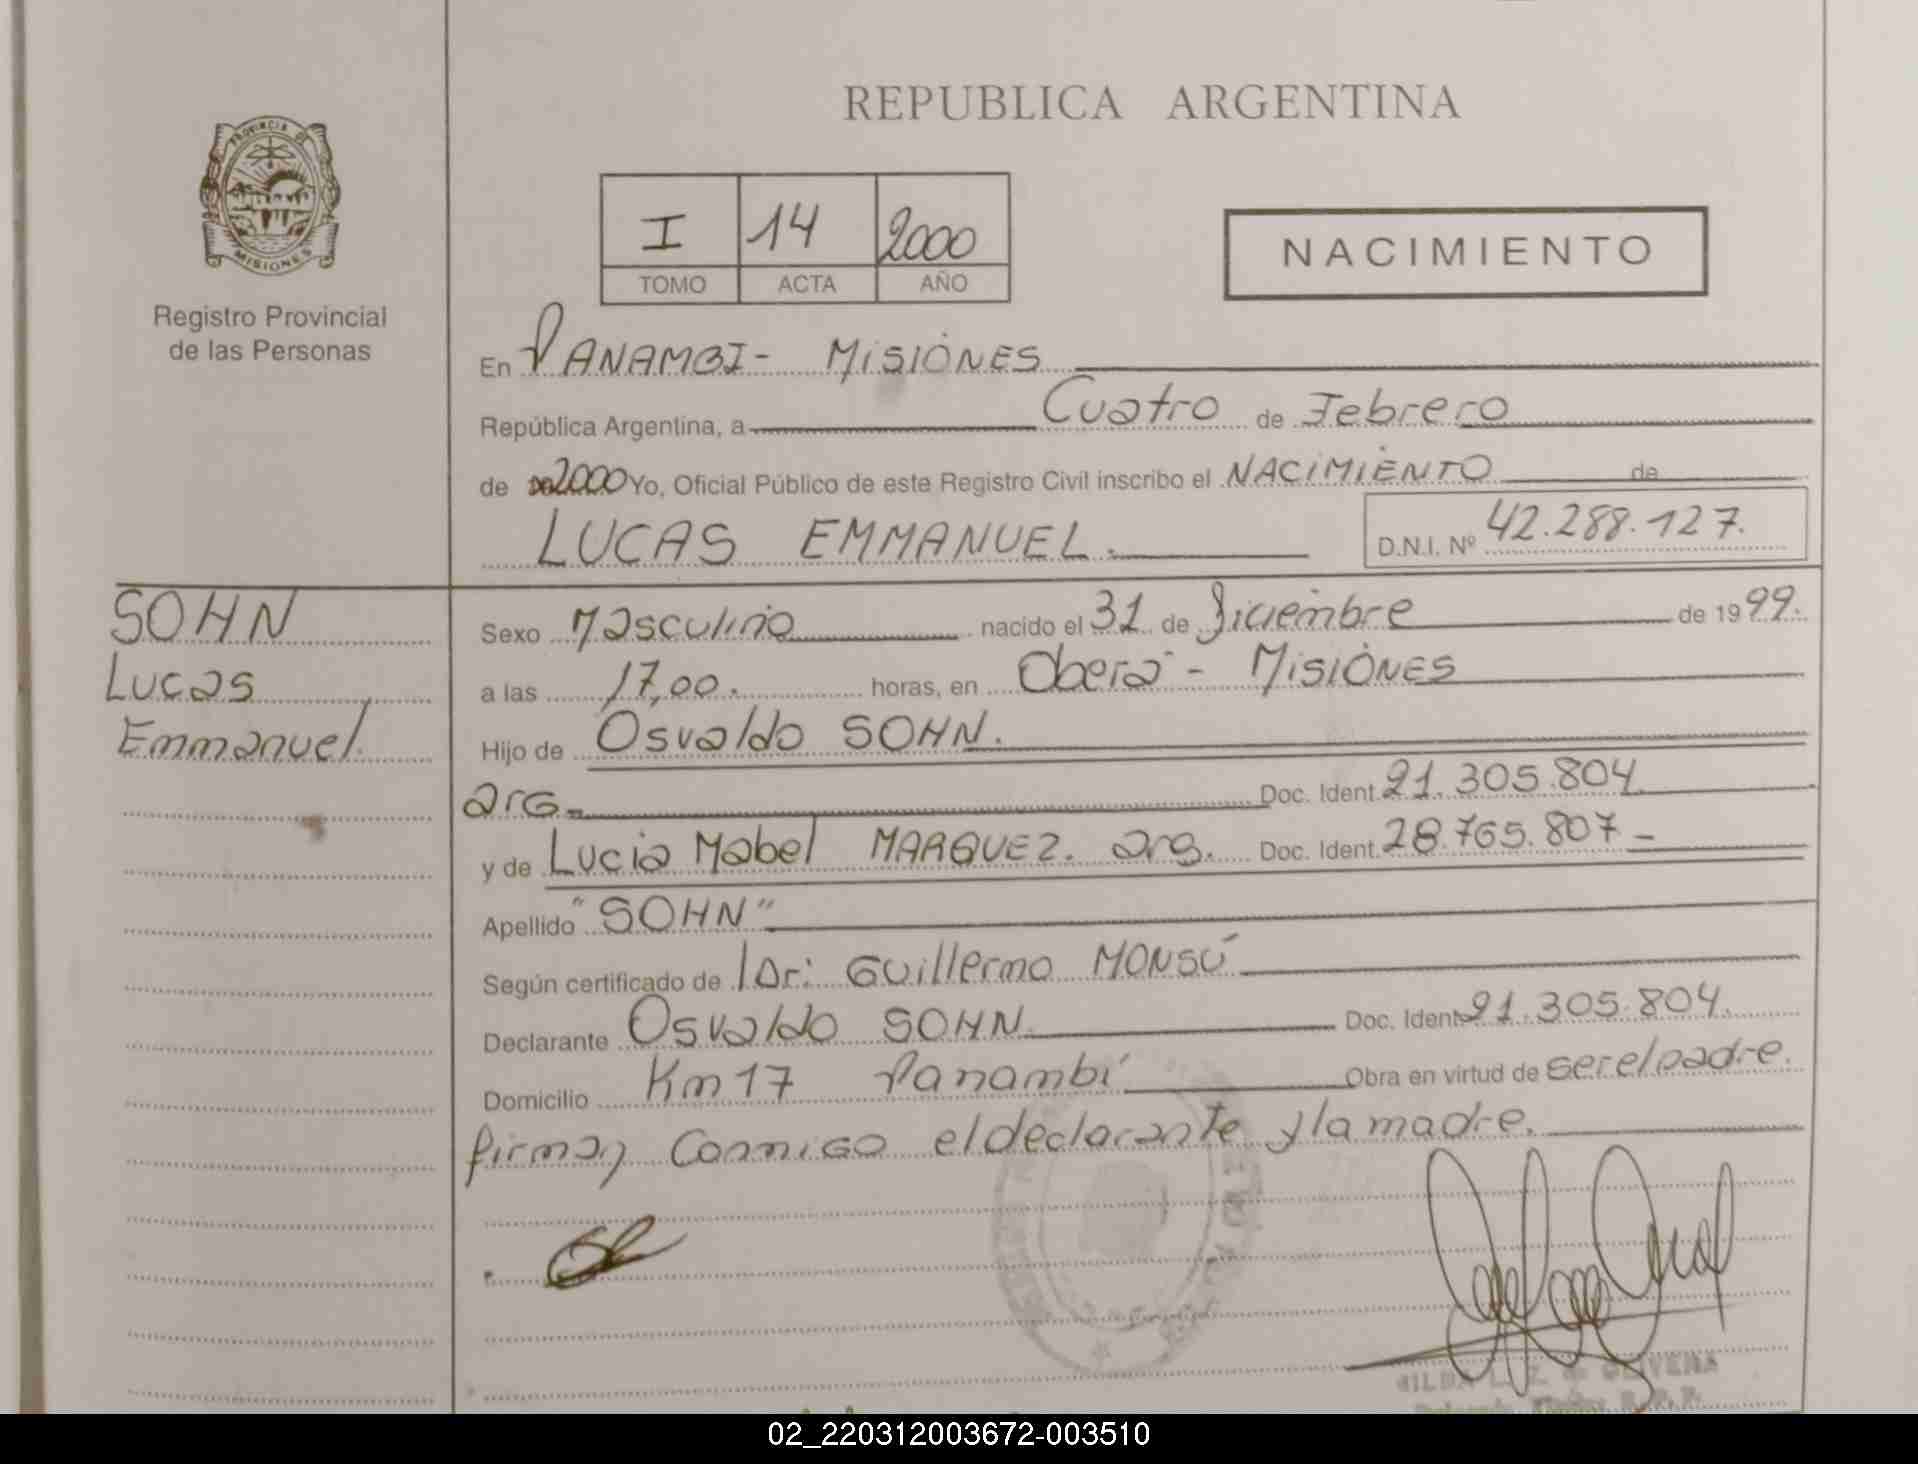 REPUBLICA ARGENTINA
PROVINCIA DE
MISIONES
Registro Provincial
de las Personas
I 14 2000
TOMO ACTA AÑO
NACIMIENTO
En PANAMBI - MISIONES
República Argentina, a Cuatro de Febrero
de 2000 Yo, Oficial Público de este Registro Civil inscribo el NACIMIENTO de
LUCAS EMMANUEL. D.N.I. Nº 42.288.127.
SOHN
Lucas
Emmanuel.
Sexo Masculino nacido el 31 de Diciembre de 1999.
a las 17,00. horas, en Oberá - MISIONES
Hijo de Osvaldo SOHN.
arg. Doc. Ident. 21.305.804
y de Lucia Mabel MARQUEZ. arg. Doc. Ident. 28.765.807 -
Apellido "SOHN"
Según certificado de Dr: Guillermo MONSÚ
Declarante Osvaldo SOHN. Doc. Ident. 21.305.804.
Domicilio Km 17 Panambí Obra en virtud de ser el padre.
firman Conmigo el declarante y la madre.
DE OLIVERA
02_220312003672-003510